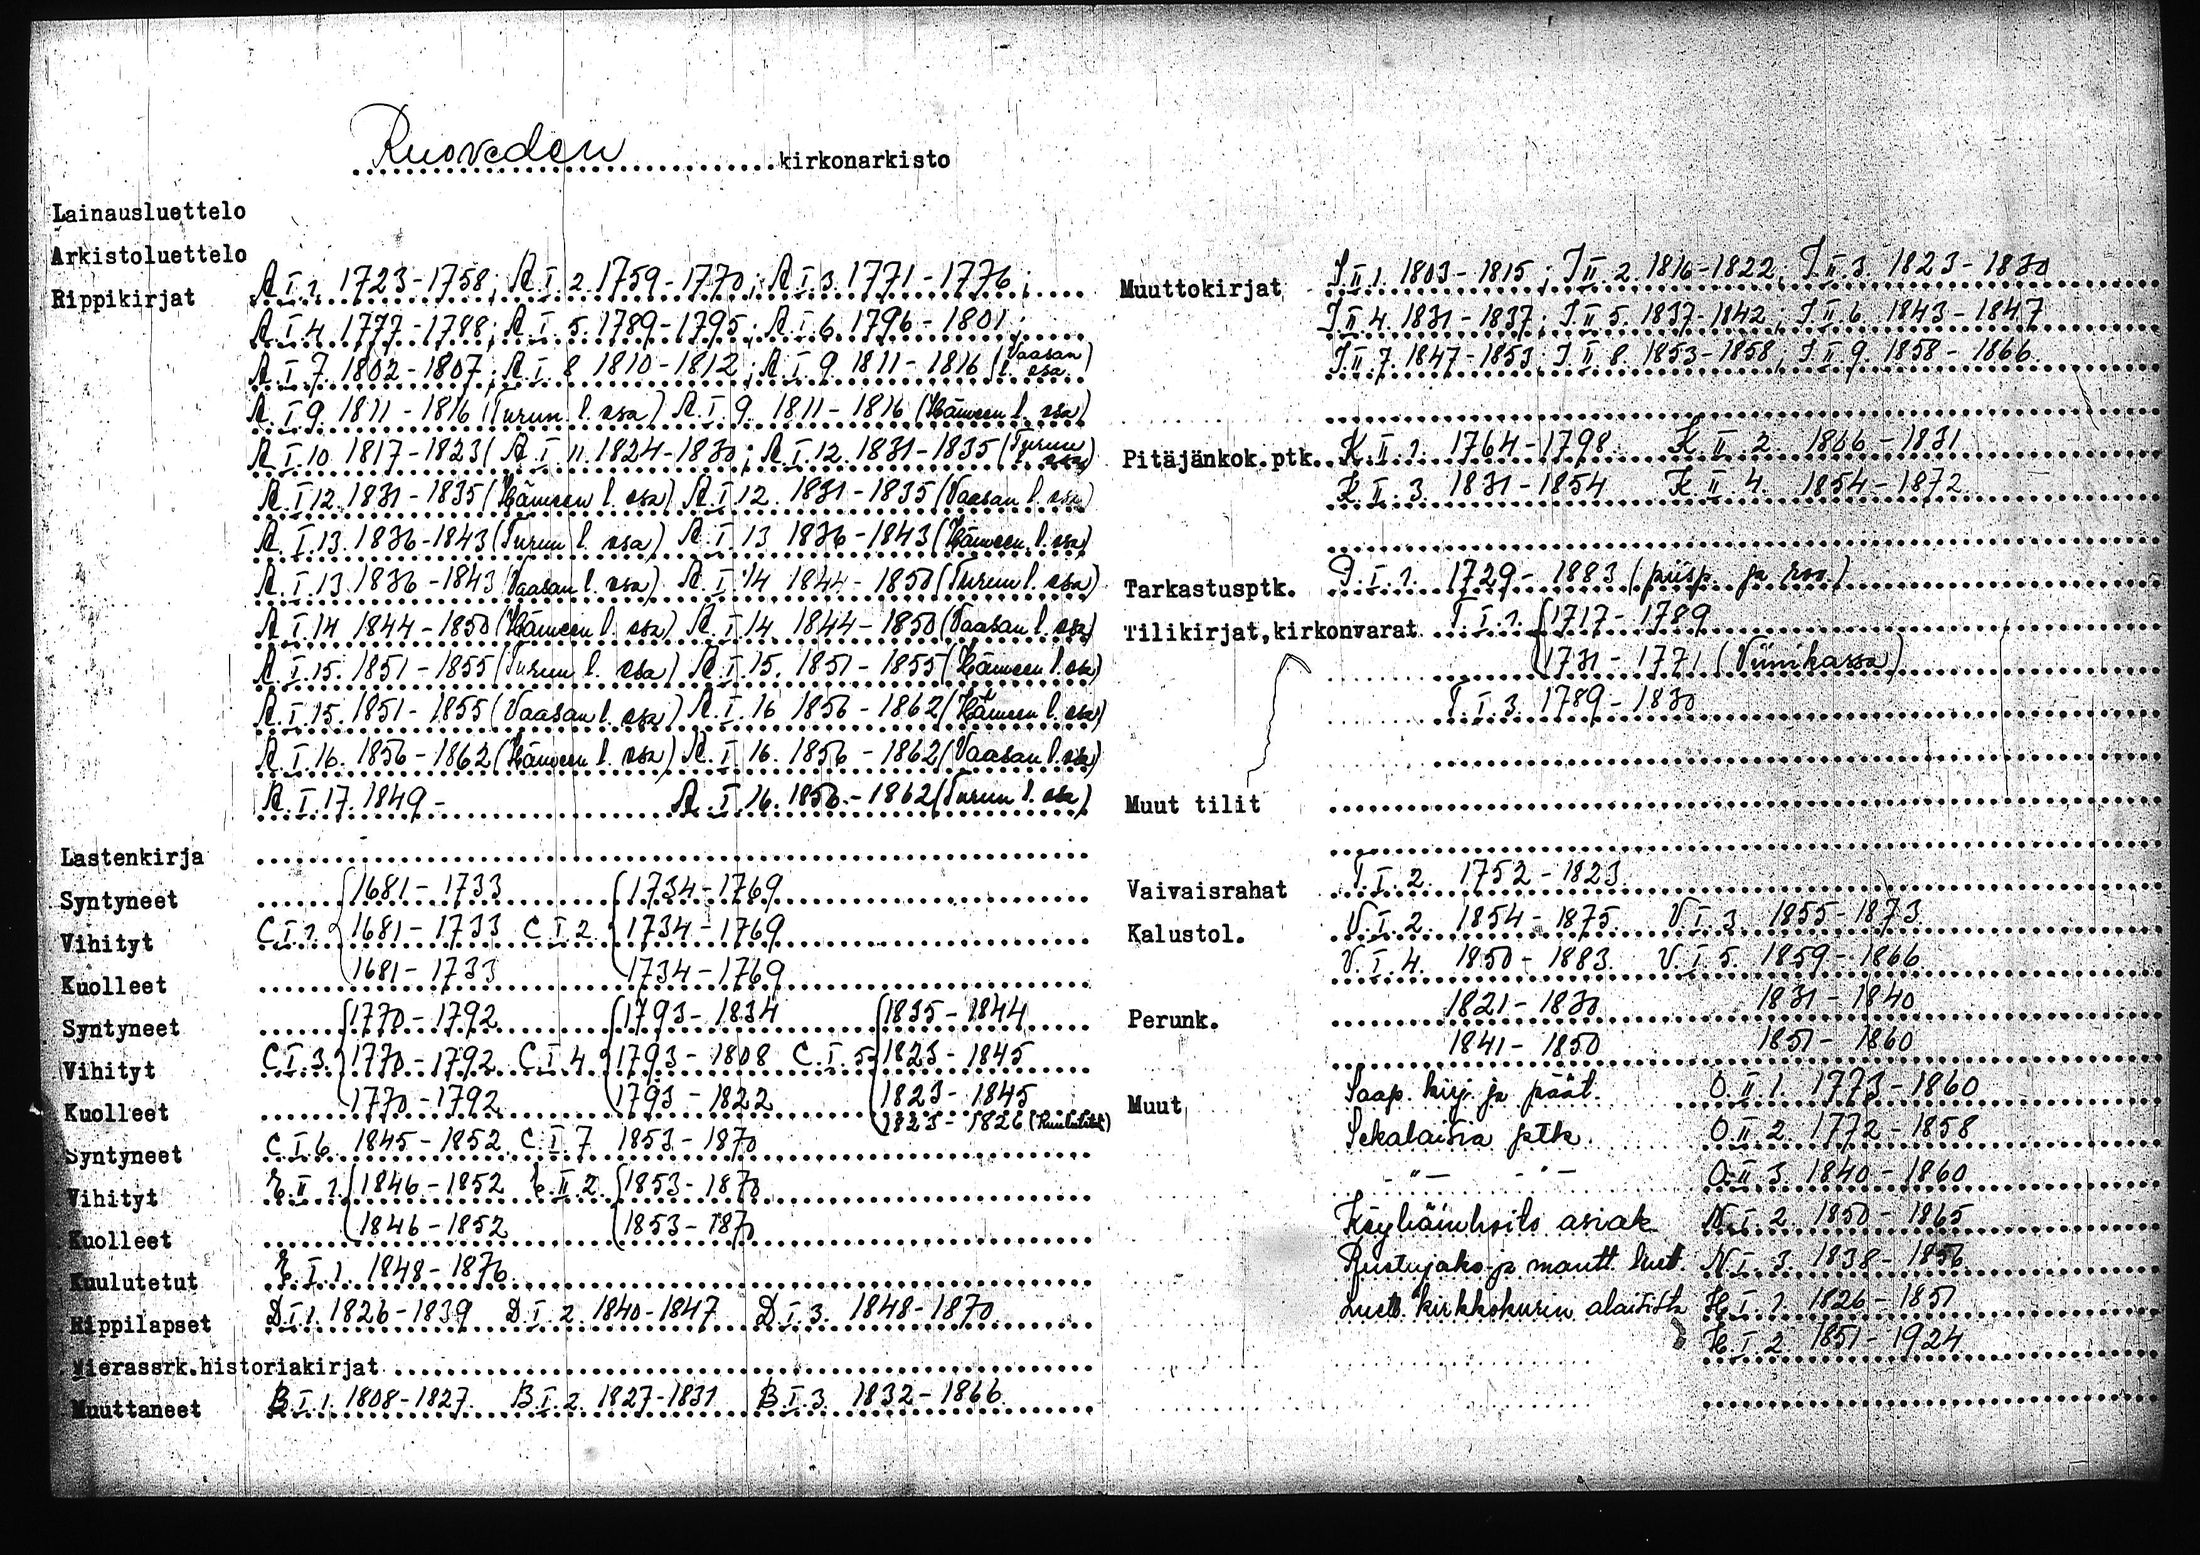 Ruoveden kirkonarkisto
Lainausluettelo
Arkistoluettelo
Rippikirjat A.I.1. 1723-1758; A.I.2. 1759-1770; A.I.3. 1771-1776;
A.I.4. 1777-1788; A.I.5. 1789-1795; A.I.6. 1796-1801;
A.I.7. 1802-1807; A.I.8. 1810-1812; A.I.9. 1811-1816 (Vaasan l. osa)
A.I.9. 1811-1816 (Turun l. osa) A.I.9. 1811-1816 (Hämeen l. osa)
A.I.10. 1817-1823( A.I.11. 1824-1830; A.I.12. 1831-1835 (Turun l. osa)
A.I.12. 1831-1835 (Hämeen l. osa) A.I.12. 1831-1835 (Vaasan l. osa)
A.I.13. 1836-1843 (Turun l. osa) A.I.13 1836-1843 (Hämeen l. osa)
A.I.13. 1836-1843 (Vaasan l. osa) A.I.14 1844-1850 (Turun l. osa)
A.I.14 1844-1850 (Hämeen l. osa) A.I.14 1844-1850 (Vaasan l. osa)
A.I.15. 1851-1855 (Turun l. osa) A.I.15. 1851-1855 (Hämeen l. osa)
A.I.15. 1851-1855 (Vaasan l. osa) A.I.16 1856-1862 (Hämeen l. osa)
A.I.16. 1856-1862 (Hämeen l. osa) A.I.16. 1856-1862 (Vaasan l. osa)
A.I.17. 1849- A.I.16. 1856-1862 (Turun l. osa)
Lastenkirja
Syntyneet 1681-1733 1734-1769
Vihityt C.I.1. 1681-1733 C.I.2. 1734-1769
Kuolleet 1681-1733 1734-1769
Syntyneet 1770-1792 1793-1834 1835-1844
Vihityt C.I.3. 1770-1792 C.I.4 1793-1808 C.I.5. 1823-1845
Kuolleet 1770-1792 1793-1822 1823-1845
1823-1826 (Kuulutetut)
Syntyneet C.I.6. 1845-1852 C.I.7 1853-1870
Vihityt E.II.1. 1846-1852 E.II.2. 1853-1870
Kuolleet 1846-1852 1853-1870
Kuulutetut E.I.1. 1848-1876
Rippilapset D.I.1. 1826-1839 D.I.2. 1840-1847 D.I.3. 1848-1870
Vierassrk.historiakirjat
Muuttaneet B.I.1. 1808-1827 B.I.2. 1827-1831 B.I.3. 1832-1866
Muuttokirjat J.II.1. 1803-1815; J.II.2. 1816-1822; J.II.3. 1823-1830
J.II.4. 1831-1837; J.II.5. 1837-1842; J.II.6. 1843-1847
J.II.7. 1847-1853; J.II.8. 1853-1858; J.II.9. 1858-1866
Pitäjänkok.ptk. K.II.1. 1764-1798 K.II.2. 1806-1831
K.II.3. 1831-1854 K.II.4. 1854-1872
Tarkastusptk. P.I.1. 1729-1883 (piisp. ja rov.)
Tilikirjat,kirkonvarat T.I.1. 1717-1789
1731-1771 (Viinikassa)
T.I.3. 1789-1830
Muut tilit
Vaivaisrahat T.I.2. 1752-1823
Kalustol. V.I.2. 1854-1875 V.I.3. 1855-1873
V.I.4. 1850-1883 V.I.5. 1859-1866
Perunk. 1821-1830 1831-1840
1841-1850 1851-1860
Muut Saap. kirj. ja päät. O.II.1. 1773-1860
Sekalaisia ptk. O.II.2. 1772-1858
-"- -"- O.II.3 1840-1860
Köyhäinhoito asiak N.I.2. 1850-1865
Ruotujako ja luet. N.I.3. 1838-1856
Luett. kirkkokurin alaisista H.I.1. 1826-1851
H.I.2. 1851-1924